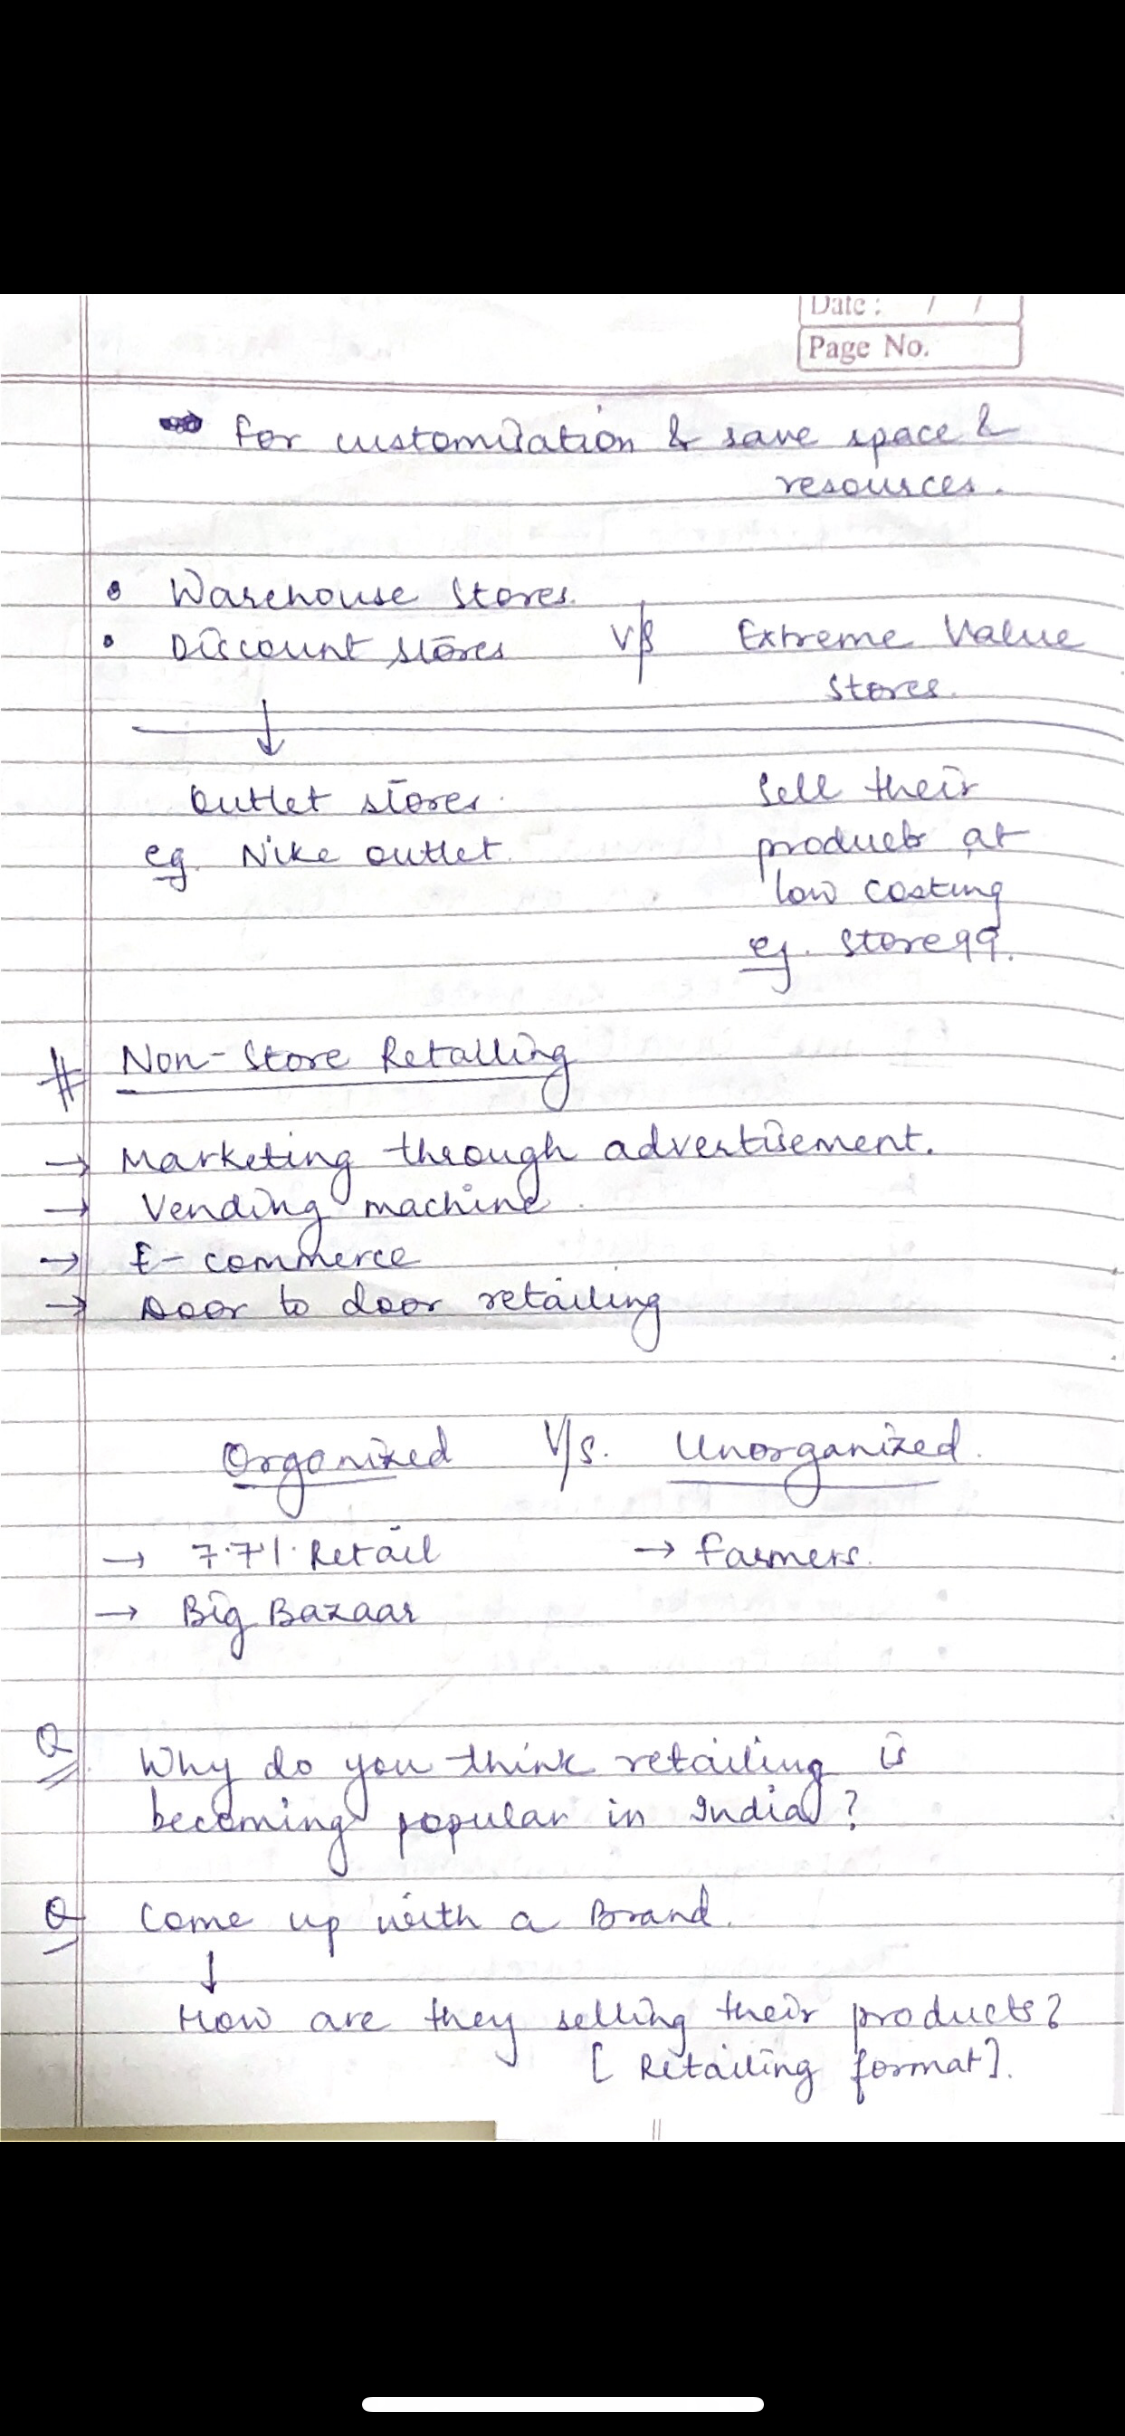 Date : / /
Page No.
→ For customisation & save space &
resources.
• Warehouse stores.
• Discount stores V/S Extreme Value
stores.
↓
Outlet stores. Sell their
eg. Nike outlet. products at
low costing
eg. Store 99.
# Non-Store Retailing
→ Marketing through advertisement.
→ Vending machine.
→ E-commerce
→ Door to door retailing
Organized V/s. Unorganized.
→ 7.7% Retail → Farmers.
→ Big Bazaar
Q Why do you think retailing is
becoming popular in India?
Q Come up with a Brand.
↓
How are they selling their products?
[Retailing format].